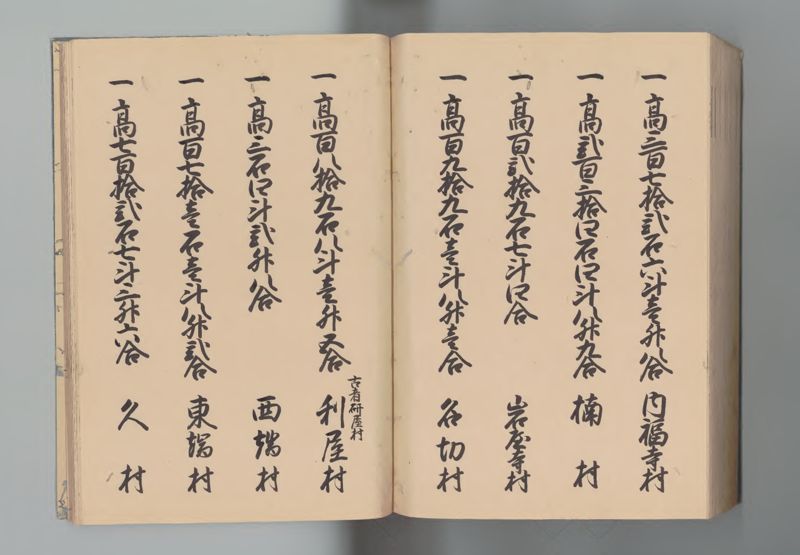 一 高三百七拾弐石六斗壱升八合 内福寺村
一 高弐百三拾四石四斗八升九合 楠村
一 高百弐拾九石七斗四合 岩屋寺村
一 高百九拾九石壱斗八升壱合 名切村
一 高百八拾九石八斗壱升五合 古者研屋村 利屋村
一 高三石四斗弐升八合 西端村
一 高百七拾壱石壱斗八升弐合 東端村
一 高七百拾弐石七斗三升六合 久村